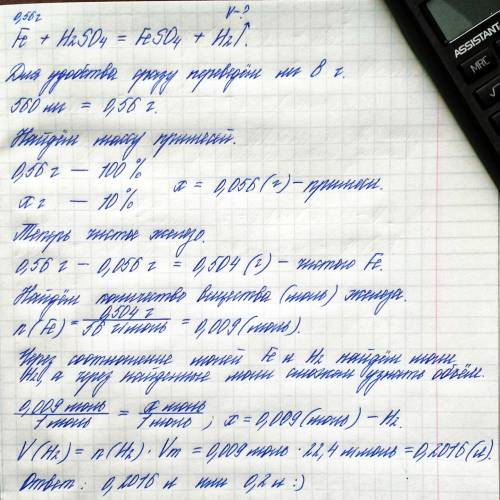 0,56г V-?
Fe + H2SO4 = FeSO4 + H2↑.
Для удобства сразу переведём мг в г.
560 мг = 0,56 г.
Найдём массу примесей.
0,56 г — 100%
x г — 10%
x = 0,056 (г) - примеси.
Теперь чистое железо.
0,56 г - 0,056 г = 0,504 (г) - чистого Fe.
Найдём количество вещества (моль) железа.
n(Fe) = 0,504 г / 56 г/моль = 0,009 (моль).
Через соотношение молей Fe и H2 найдём моли
H2, а через найденные моли сможем узнать объём.
0,009 моль / 1 моль = x моль / 1 моль ; x = 0,009 (моль) - H2.
V(H2) = n(H2) · Vm = 0,009 моль · 22,4 л/моль = 0,2016 (л).
Ответ: 0,2016 л или 0,2 л :)
ASSISTANT
MRC
√